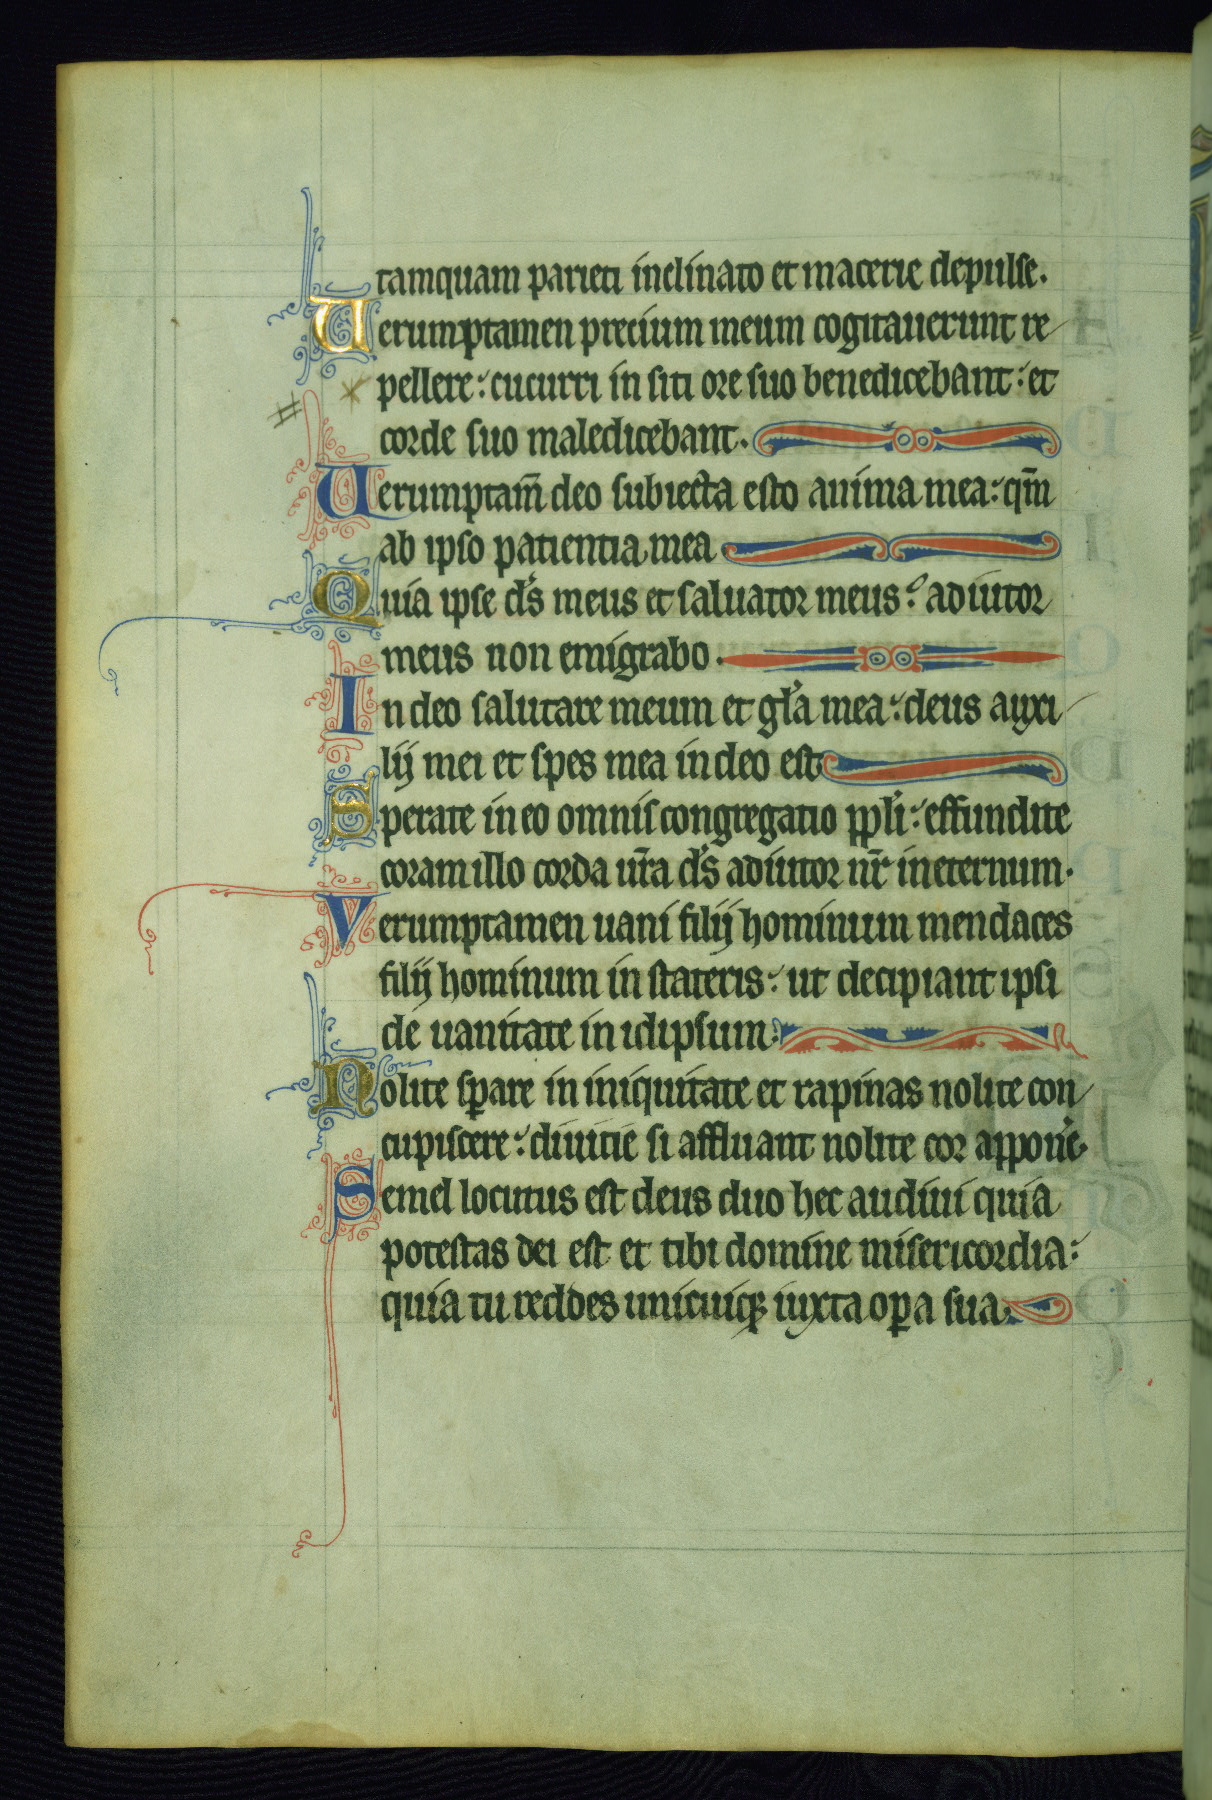 tamquam parieti inclinato et macerie depulse.
Uerumptamen precium meum cogitauerunt re
pellere: cucurri in siti ore suo benedicebant: et
corde suo maledicebant.
Uerumptam̄ deo subiecta esto anima mea: qm̄
ab ipso patientia mea
Quia ipse ds̄ meus et saluator meus: adiutor
meus non emigrabo.
In deo salutare meum et gl̄a mea: deus auxi
lij mei et spes mea in deo est
Sperate in eo omnis congregatio ppl̄i: effundite
coram illo corda ur̄a ds̄ adiutor nr̄ in eternum.
Verumptamen uani filij hominum mendaces
filij hominum in stateris: ut decipiant ipsi
de uanitate in idipsum.
Nolite sꝑare in iniquitate et rapinas nolite con
cupiscere: diuitie si affluant nolite cor appone᷒
Semel locutus est deus duo hec audiui quia
potestas dei est et tibi domine misericordia:
quia tu reddes unicuiqꝫ iuxta oꝑa sua.